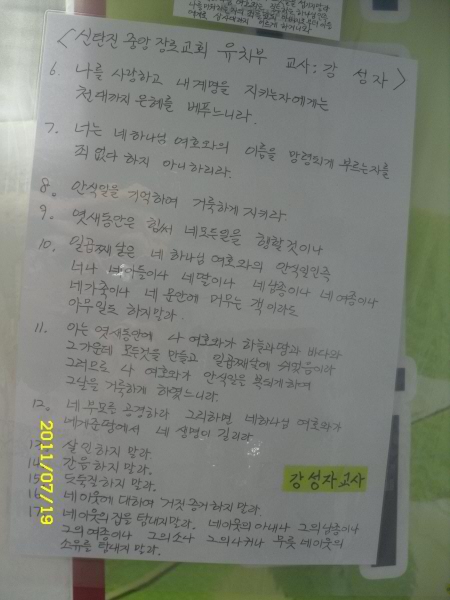 <신탄진 중앙 장로교회 유치부 교사: 강 성자>
6. 나를 사랑하고 내 계명을 지키는자에게는
천대까지 은혜를 베푸느니라.
7. 너는 네하나님 여호와의 이름을 망령되게 부르는자를
죄 없다 하지 아니하리라.
8. 안식일을 기억하여 거룩하게 지키라
9. 엿새동안은 힘써 네모든일을 행할것이나
10. 일곱째날은 네 하나님 여호와의 안식일인즉
너나 네아들이나 네딸이나 네남종이나 네여종이나
네가축이나 네 문안에 머무는 객이라도
아무일도 하지말라.
11. 이는 엿새동안에 나 여호와가 하늘과땅과 바다와
그가운데 모든것을 만들고 일곱째날에 쉬었음이라
그러므로 나 여호와가 안식일을 복되게하여
그날을 거룩하게 하였느니라.
12. 네 부모를 공경하라 그리하면 네하나님 여호와가
네게준땅에서 네 생명이 길리라
13. 살인하지 말라.
14. 간음하지 말라.
15. 도둑질하지 말라.
16. 네이웃에 대하여 거짓 증거하지말라.
17. 네이웃의집을 탐내지말라. 네이웃의아내나 그의남종이나
그의여종이나 그의소나 그의나귀나 무릇 네이웃의
소유를 탐내지 말라.
강성자교사
2011/07/19